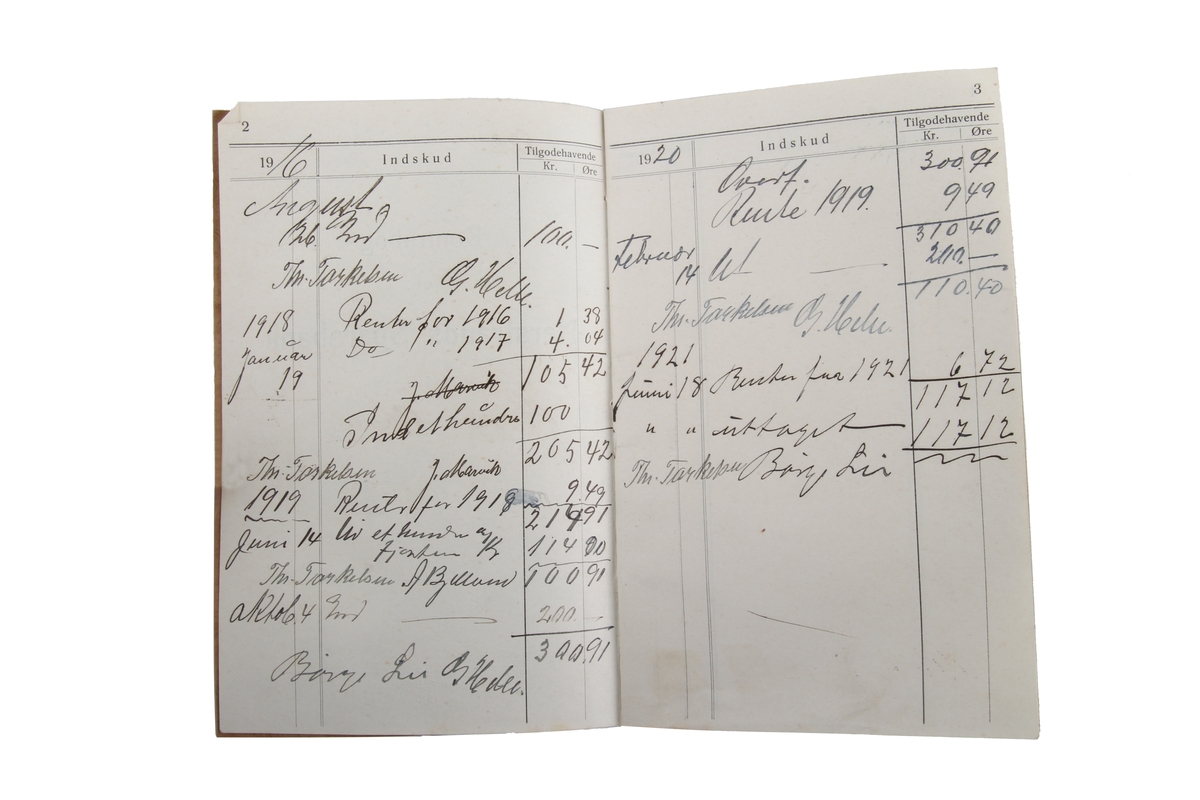 2
1916 Indskud Tilgodehavende
Kr. Øre
August
26 Ind — 100. —
Th. Torkelsen G. Helle.
1918 Renter for 1916 1 38
Januar Do " 1917 4. 04
19 J. Marvik 105 42
Ind et hundre 100
205 42
Th. Torkelsen J. Marvik
1919 Renter for 1918 9.49
214 91
Juni 14 Ut et hundre og 114 00
fjorten Kr
Th. Torkelsen 100 91
Oktob. 4 Ind — 200. —
300.91
Børge Lir G. Helle.
3
1920 Indskud Tilgodehavende
Kr. Øre
Overf. 300.91
Rente 1919. 9 49
310 40
Februar
14 Ut — 200. —
110.40
Th. Torkelsen G. Helle.
1921
Juni 18 Renter for 1921 6 72
117 12
" " uttaget — 117 12
Th. Torkelsen Børge Lir